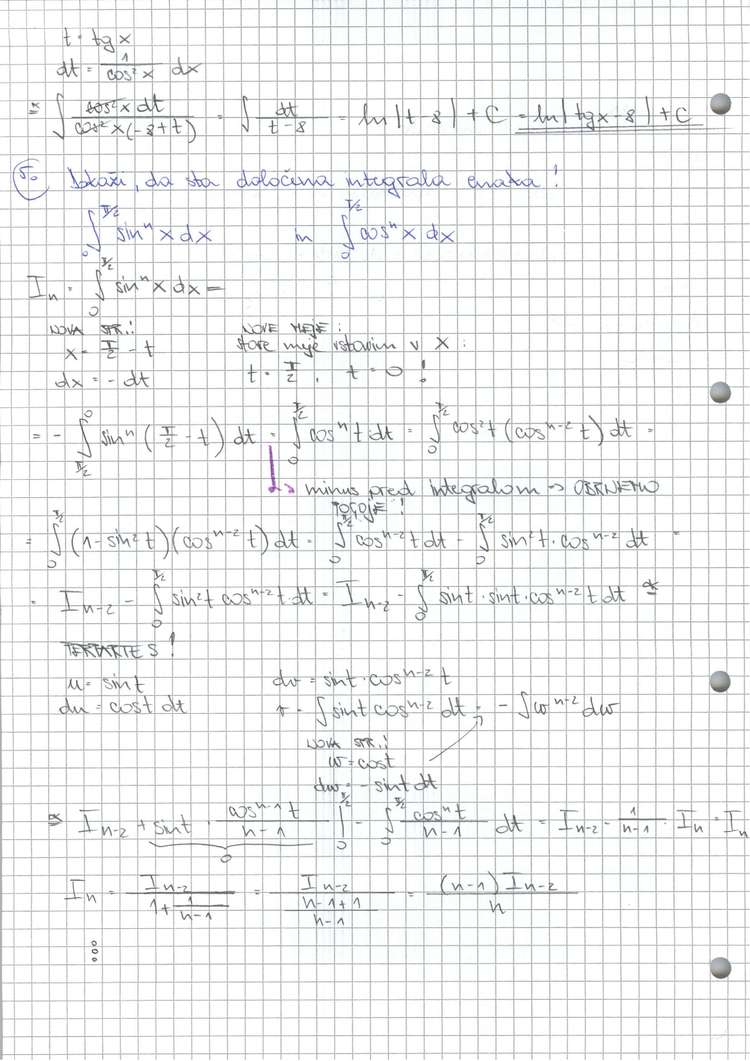 t = tg x
dt = 1/cos²x dx
* = ∫ cos²x dt / cos²x(-8+t) = ∫ dt/(t-8) = ln|t-8| + C = ln|tgx-8| + C
5. Dokaži, da sta določena integrala enaka!
∫₀^(π/2) sinⁿx dx in ∫₀^(π/2) cosⁿx dx
Iₙ = ∫₀^(π/2) sinⁿx dx =
NOVA SPR.: NOVE MEJE:
x = π/2 - t stare meje vstavim v x:
dx = -dt t = π/2, t = 0!
= -∫_(π/2)^0 sinⁿ(π/2 - t) dt = ∫₀^(π/2) cosⁿt dt = ∫₀^(π/2) cos²t (cosⁿ⁻²t) dt =
↳ minus pred integralom → OBRNEMO
= ∫₀^(π/2) (1-sin²t)(cosⁿ⁻²t) dt = ∫₀^(π/2) cosⁿ⁻²t dt - ∫₀^(π/2) sin²t · cosⁿ⁻² dt =
= Iₙ₋₂ - ∫₀^(π/2) sin²t cosⁿ⁻²t dt = Iₙ₋₂ - ∫₀^(π/2) sint · sint · cosⁿ⁻²t dt *=
PER PARTES!
u = sint dv = sint · cosⁿ⁻²t
du = cost dt v = ∫ sint cosⁿ⁻² dt = -∫ wⁿ⁻² dw
NOVA SPR.:
w = cost
dw = -sint dt
*= Iₙ₋₂ + sint · cosⁿ⁻¹t/(n-1) |₀^(π/2) - ∫₀^(π/2) cosⁿt/(n-1) dt = Iₙ₋₂ - 1/(n-1) · Iₙ = Iₙ
0
Iₙ = Iₙ₋₂ / (1 + 1/(n-1)) = Iₙ₋₂ / ((n-1+1)/(n-1)) = (n-1) Iₙ₋₂ / n